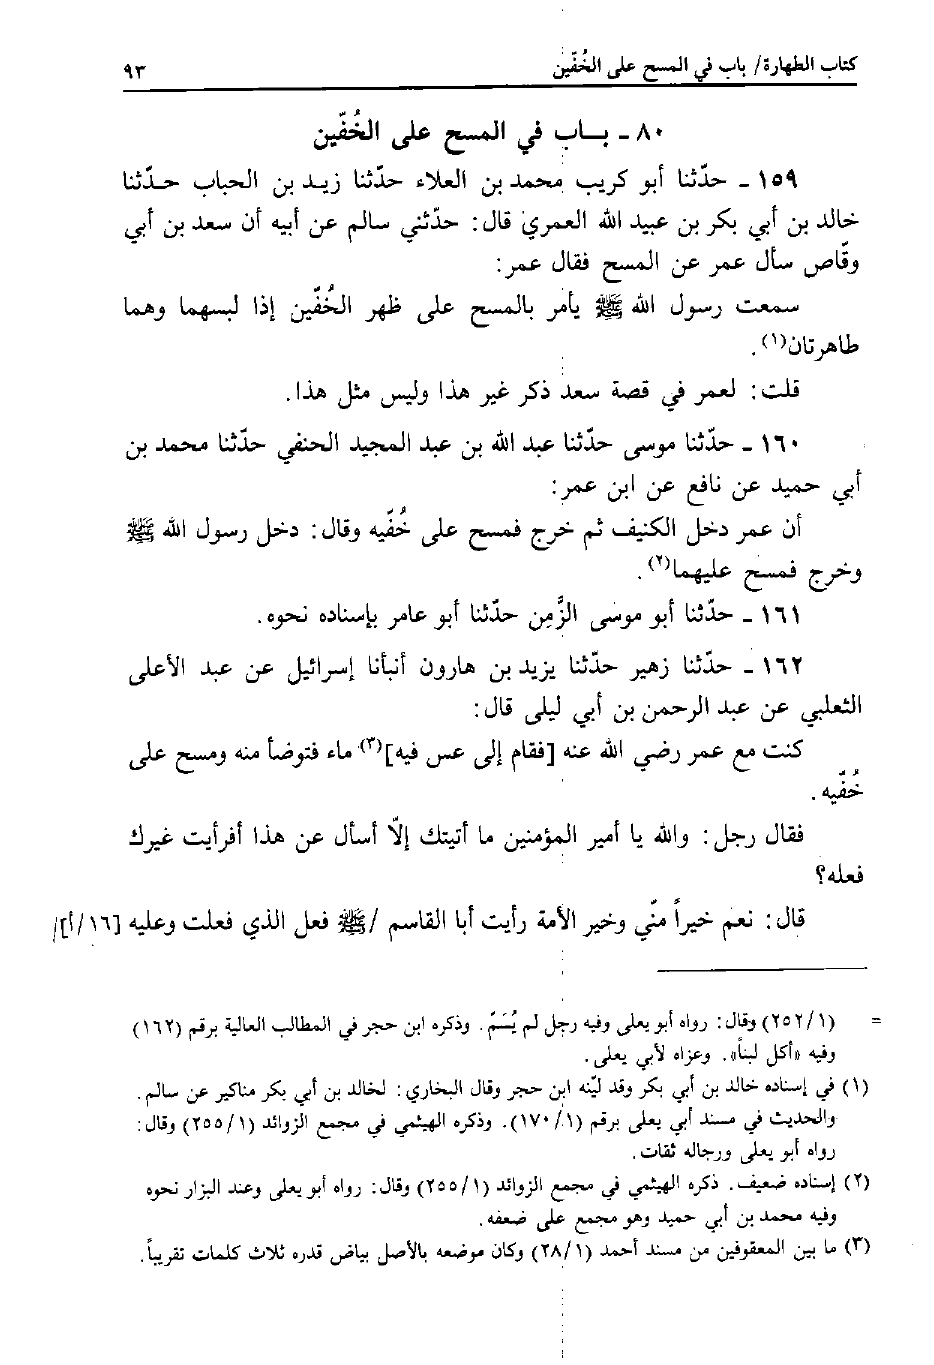 كتاب الطهارة/ باب في المسح على الخُفّين ٩٣
٨٠ ـ بـاب في المسح على الخُفّين
١٥٩ ـ حدّثنا أبو كريب محمد بن العلاء حدّثنا زيد بن الحباب حدّثنا
خالد بن أبي بكر بن عبيد الله العمري قال: حدّثني سالم عن أبيه أن سعد بن أبي
وقّاص سأل عمر عن المسح فقال عمر:
سمعت رسول الله ﷺ يأمر بالمسح على ظهر الخُفّين إذا لبسهما وهما
طاهرتان(١).
قلت: لعمر في قصة سعد ذكر غير هذا وليس مثل هذا.
١٦٠ ـ حدّثنا موسى حدّثنا عبد الله بن عبد المجيد الحنفي حدّثنا محمد بن
أبي حميد عن نافع عن ابن عمر:
أن عمر دخل الكنيف ثم خرج فمسح على خُفّيه وقال: دخل رسول الله ﷺ
وخرج فمسح عليهما(٢).
١٦١ ـ حدّثنا أبو موسى الزَّمِن حدّثنا أبو عامر بإسناده نحوه.
١٦٢ ـ حدّثنا زهير حدّثنا يزيد بن هارون أنبأنا إسرائيل عن عبد الأعلى
الثعلبي عن عبد الرحمن بن أبي ليلى قال:
كنت مع عمر رضي الله عنه [فقام إلى عس فيه](٣) ماء فتوضأ منه ومسح على
خُفّيه.
فقال رجل: والله يا أمير المؤمنين ما أتيتك إلّا أسأل عن هذا أفرأيت غيرك
فعله؟
قال: نعم خيراً منّي وخير الأمة رأيت أبا القاسم /ﷺ فعل الذي فعلت وعليه [١٦/أ]/
= (٢٥٢/١) وقال: رواه أبو يعلى وفيه رجل لم يُسَمّ. وذكره ابن حجر في المطالب العالية برقم (١٦٢)
وفيه «أكل لبناً». وعزاه لأبي يعلى.
(١) في إسناده خالد بن أبي بكر وقد ليّنه ابن حجر وقال البخاري: لخالد بن أبي بكر مناكير عن سالم.
والحديث في مسند أبي يعلى برقم (١٧٠/١). وذكره الهيثمي في مجمع الزوائد (٢٥٥/١) وقال:
رواه أبو يعلى ورجاله ثقات.
(٢) إسناده ضعيف. ذكره الهيثمي في مجمع الزوائد (٢٥٥/١) وقال: رواه أبو يعلى وعند البزار نحوه
وفيه محمد بن أبي حميد وهو مجمع على ضعفه.
(٣) ما بين المعقوفين من مسند أحمد (٢٨/١) وكان موضعه بالأصل بياض قدره ثلاث كلمات تقريباً.